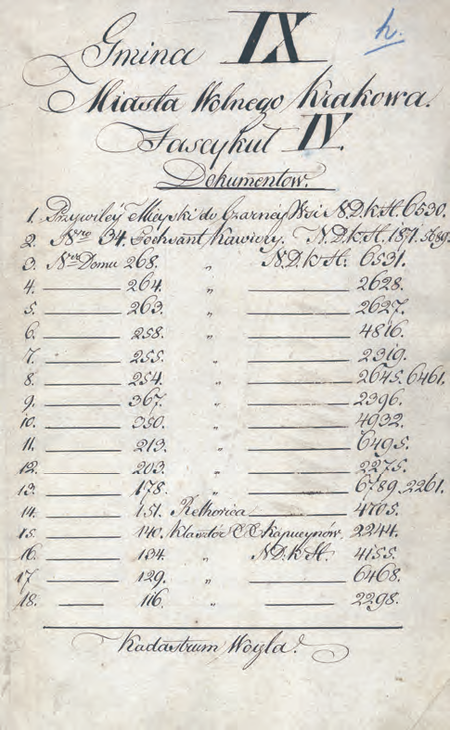 h.
Gmina IX
Miasta Wolnego Krakowa.
Fascykuł IV.
Dokumentow.
1. Przywiléy Mieyski do Czarney Wsi N.D.k.H. 6530.
2. Nro 34. Kawiory. N.D.k.H. 187.
3. Nro Domu 268. " N.D.k.H. 6531.
4. 264. " 2628.
5. 263. " 2627.
6. 258. " 4816.
7. 255. " 2319.
8. 254. " 2645. 6461.
9. 367. " 2396.
10. 350. " 4932.
11. 213. " 6495.
12. 203. " 2275.
13. 178. " 6789. 2261.
14. 151. Rethorica 4705.
15. 140. Klasztór Kapucynów. 2244.
16. 134. " N.D.k.H. 4155.
17. 129. " 6468.
18. 116. " 2298.
Kadastrum